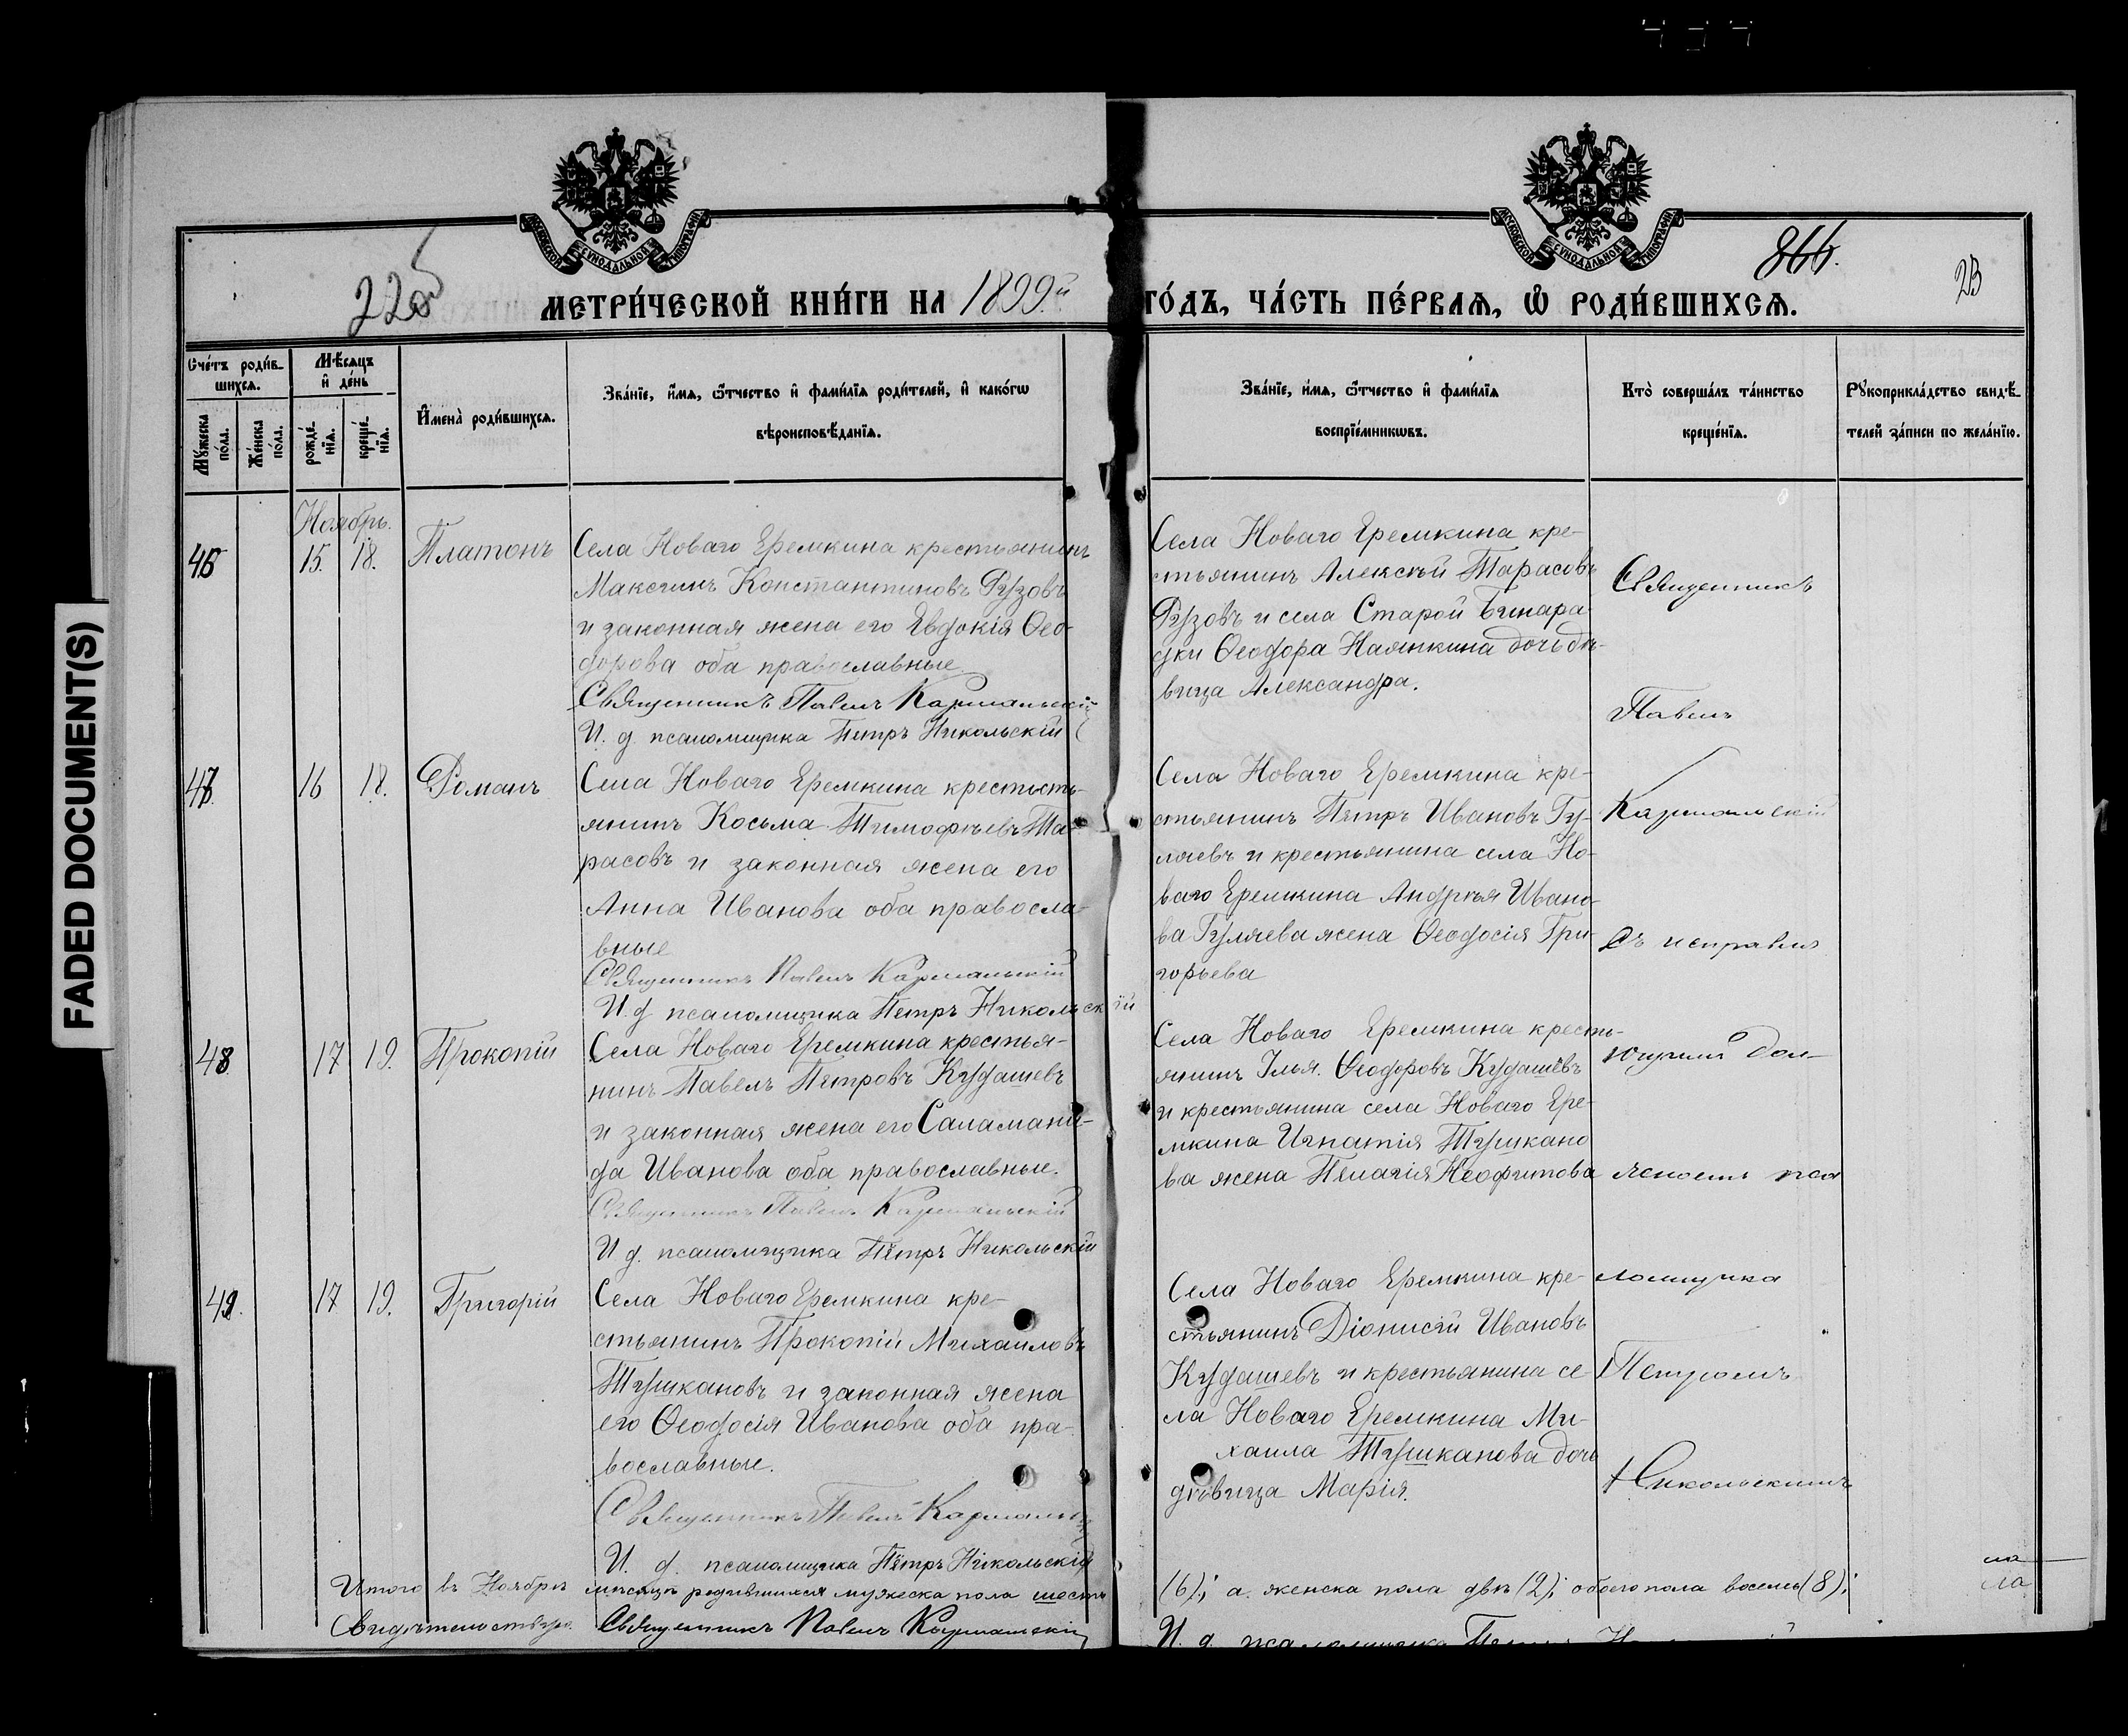 FADED DOCUMENT(S)
МОСКОВСКОЙ СѴНОДАЛЬНОЙ ТИПОГРАФІИ
МОСКОВСКОЙ СѴНОДАЛЬНОЙ ТИПОГРАФІИ
866.
23
МЕТРИ́ЧЕСКОЙ КНИ́ГИ НА 1899.й
ГО́ДЪ, ЧА́СТЬ ПЕ́РВАЯ, Ѡ РОДИ́ВШИХСѦ.
Сче́тъ роди́в-
шихсѧ.
Мꙋ́жеска по́ла.
Же́нска по́ла.
Мѣ́сѧцъ
и҆ де́нь
рожде́-нїѧ.
креще́-нїѧ.
И҆мена̀ роди́вшихсѧ.
Зва́нїе, и҆́мѧ, ѻ҆́тчество и҆ фами́лїѧ роди́телей, и҆ како́гѡ
вѣроисповѣ́данїѧ.
Зва́нїе, и҆́мѧ, ѻ҆́тчество и҆ фами́лїѧ
воспрїе́мникѡвъ.
Кто̀ соверша́лъ та́инство
креще́нїѧ.
Рꙋкоприкла́дство свидѣ́-
телей за́писи по жела́нїю.
Ноябрь.
46 15. 18. Платонъ
Села Новаго Еремкина крестьянинъ
Максимъ Константиновъ Рузовъ
и законная жена его Евдокія Ѳео-
дорова оба православные
Священникъ Павелъ Кармальскій
И. д. псаломщика Петръ Никольскій
Села Новаго Еремкина кре-
стьянинъ Алексѣй Тарасовъ
Рузовъ и села Старой Бинара
дки Ѳеодора Наянкина дочь дѣ-
вица Александра.
47 16 18. Романъ
Села Новаго Еремкина крестьсть-
янинъ Косьма Тимофѣевъ Та-
расовъ и законная жена его
Анна Иванова оба правосла-
вные
Священникъ Павелъ Кармальскій
И. д псаломщика Петръ Никольскій
Села Новаго Еремкина кре-
стьянинъ Петръ Ивановъ Гу-
ляевъ и крестьянина села Но-
ваго Еремкина Андрѣя Ивано-
ва Гуляева жена Ѳеодосія Гри-
горьева
48 17 19. Прокопій
Села Новаго Еремкина крестья-
нинъ Павелъ Петровъ Кудашевъ
и законная жена его Саламани-
да Иванова оба православные.
Священникъ Павелъ Кармальскій
И д. псаломщика Петръ Никольскій
Села Новаго Еремкина кресть-
янинъ Илья Ѳеодоровъ Кудашевъ
и крестьянина села Новаго Ере-
мкина Игнатія Тушкано
ва жена Пелагія Неофитова
49. 17 19. Григорій
Села Новаго Еремкина кре-
стьянинъ Прокопій Михаиловъ
Тушкановъ и законная жена
его Ѳеодосія Иванова оба пра-
вославные.
Священникъ Павелъ Кармальскій
И. д. псаломщика Петръ Никольскій
Села Новаго Еремкина кре-
стьянинъ Діонисій Ивановъ
Кудашевъ и крестьянина се
ла Новаго Еремкина Ми-
хаила Тушканова дочь
дѣвица Марія.
Священникъ
Павелъ
Кармальскій
съ исправля
ющимъ дол-
жность пса
ломщика
Петромъ
Никольскимъ
Итого въ Ноябрѣ мѣсяцѣ родившихся мужеска пола шесть
(6); а женска пола двѣ (2); обоего пола восемь (8);
Священникъ Павелъ Кармальскій
И. д. псаломщика